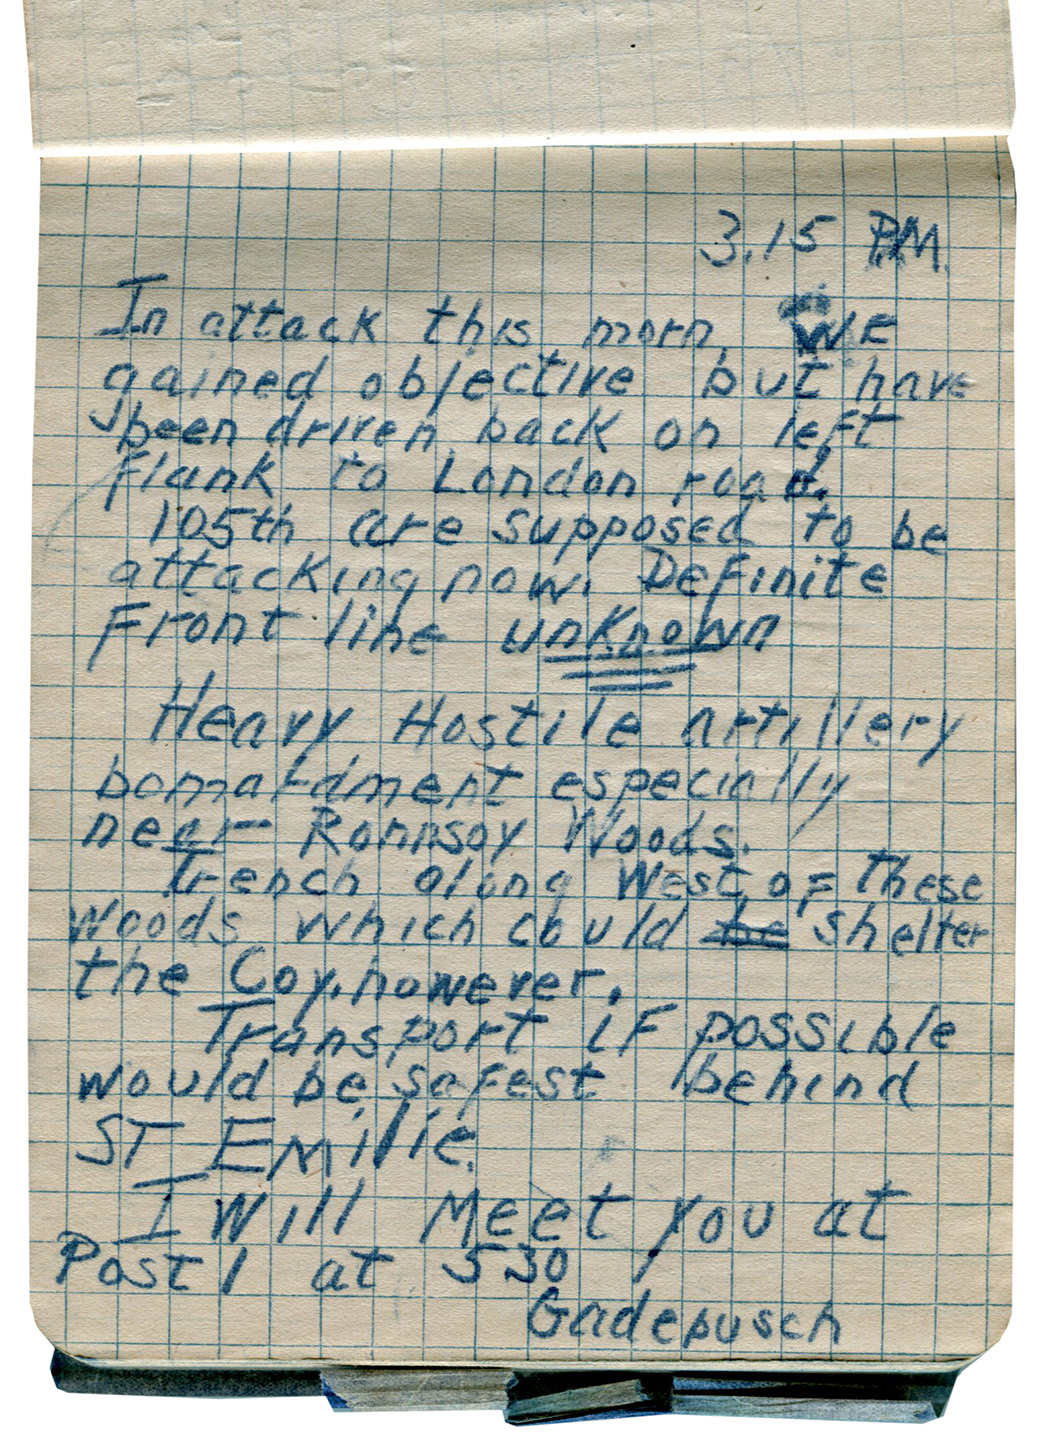 3.15 P.M.
In attack this morn. WE
gained objective but have
been driven back on left
flank to London road.
105th are supposed to be
attacking now. Definite
Front line unknown
Heavy Hostile artillery
bomardment especially
near Ronnsoy Woods.
Trench along West of these
Woods which could be shelter
the Coy. however.
Transport if possible
would be safest behind
ST EMilie.
I Will Meet you at
Post 1 at 530
Gadepusch